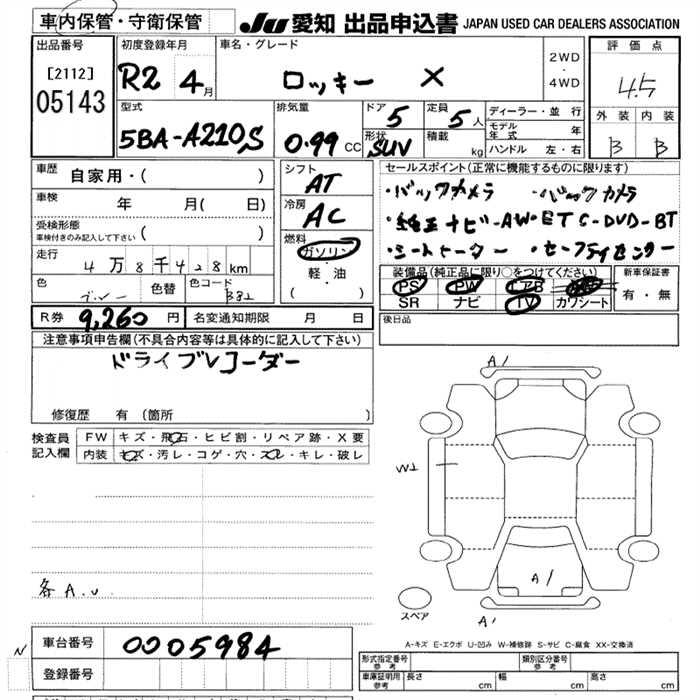 車内保管・守衛保管
JU 愛知 出品申込書 JAPAN USED CAR DEALERS ASSOCIATION
出品番号
[2112]
05143
初度登録年月
R2 4月
車名・グレード
ロッキー X
2WD
・
4WD
評価点
4.5
外装 内装
B B
型式
5BA-A210S
排気量
0.99 CC
ドア
5
定員
5人
形状
SUV
積載
kg
ディーラー・並行
モデル年式 年
ハンドル 左・右
車歴
自家用・( )
車検
年 月( 日)
受検形態
車検付きのみ記入して下さい ( )
走行
4万8千428km
色
グレー
色替
色コード
シフト
AT
冷房
AC
燃料
ガソリン
・
軽・油
( )
セールスポイント(正常に機能するものに限ります)
・バックカメラ ・バックカメラ
・純正ナビ-AW-ETC-DVD-BT
・シートヒーター ・セーフティセンサー
装備品(純正品に限り○をつけてください)
PS PW エアB
SR ナビ TV カワシート
新車保証書
有・無
後日品
R券 9,260円 名変通知期限 月 日
注意事項申告欄(不具合内容等は具体的に記入して下さい)
ドライブレコーダー
修復歴 有(箇所 )
検査員
記入欄
FW キズ・飛石・ヒビ割・リペア跡・X要
内装 キズ・汚レ・コゲ・穴・スレ・キレ・破レ
各A.U
A1
W1
A1
A1
スペア
A-キズ E-エクボ U-凹み W-補修跡 S-サビ C-腐食 XX-交換済
N
車台番号 0005984
登録番号
形式指定番号
参考
類別区分番号
参考
車庫証明用
参考
長さ cm 幅 cm 高さ cm